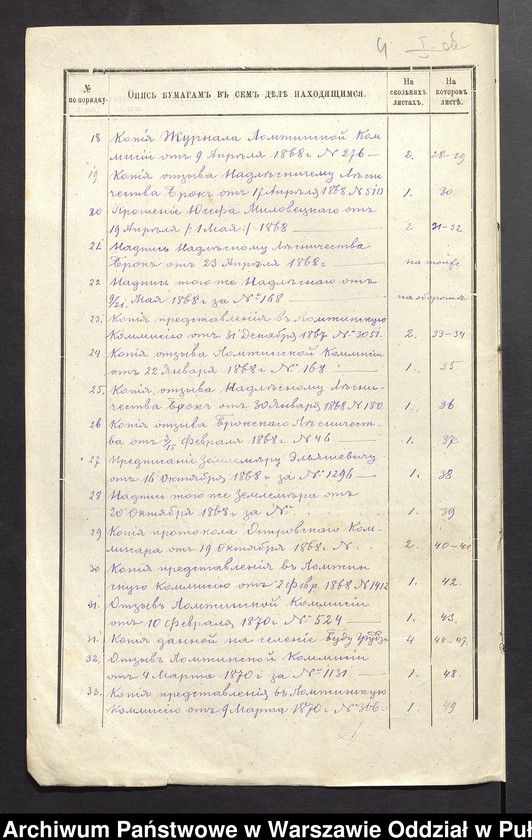 4 I-об
№ по порядку.
Опись бумагамъ въ семъ дѣлѣ находящимся.
На сколькихъ листахъ.
На которомъ листѣ.
18 Копія Журнала Ломжинской Ком
миссіи отъ 9 Апрѣля 1868 г № 276 — 2. 28-29
19 Копія отзыва Надлѣсничему Лѣсни
чества Брокъ отъ 17 Апрѣля 1868 № 510 1. 30.
20 Прошеніе Юсефа Миловецкаго отъ
19 Апрѣля /: 1 Мая :/ 1868 — 2 31-32
21 Надпись Надлѣсному Лѣсничества
Брокъ отъ 23 Апрѣля 1868 г — на тойже
22 Надпись того же Надлѣснаго отъ
9/21 Мая 1868 г за № 168 — на оборотѣ
23. Копія представленія въ Ломжинскую
Коммисію отъ 31 Декабря 1867 № 3051. 2. 33-34
24 Копія отзыва Ломжинской Коммисіи
отъ 22 Января 1868 г № 168 1. 35
25. Копія отзыва Надлѣсному Лѣсни-
чества Брокъ отъ 30 Января 1868 № 180 1. 36
26 Копія отзыва Брокскаго Лѣсничест-
ва отъ 3/15 Февраля 1868 г № 46 — 1. 37.
27 Предписаніе Землемѣру Эльяшевичу
отъ 16 Октября 1868 г за № 1296 — 1. 38
28 Надпись того же Землемѣра отъ
20 Октября 1868 г за №. 1. 39
29 Копія протокола Островскаго Ком-
мисара отъ 19 Октября 1868 г №. 2. 40-41
30 Копія представленія въ Ломжин
скую Коммисію отъ 2 Февр. 1868 № 1412 1. 42.
31. Отзывъ Ломжинской Коммисіи
отъ 10 Февраля 1870 г № 524 — 1. 43.
31. Копія данной на селеніе Буду 4 44-47.
32. Отзывъ Ломжинской Коммисіи
отъ 4 Марта 1870 г за № 1131 1. 48.
33. Копія представленія въ Ломжинскую
Коммисію отъ 9 Марта 1870 г № 366 1. 49
Archiwum Państwowe w Warszawie Oddział w Puł